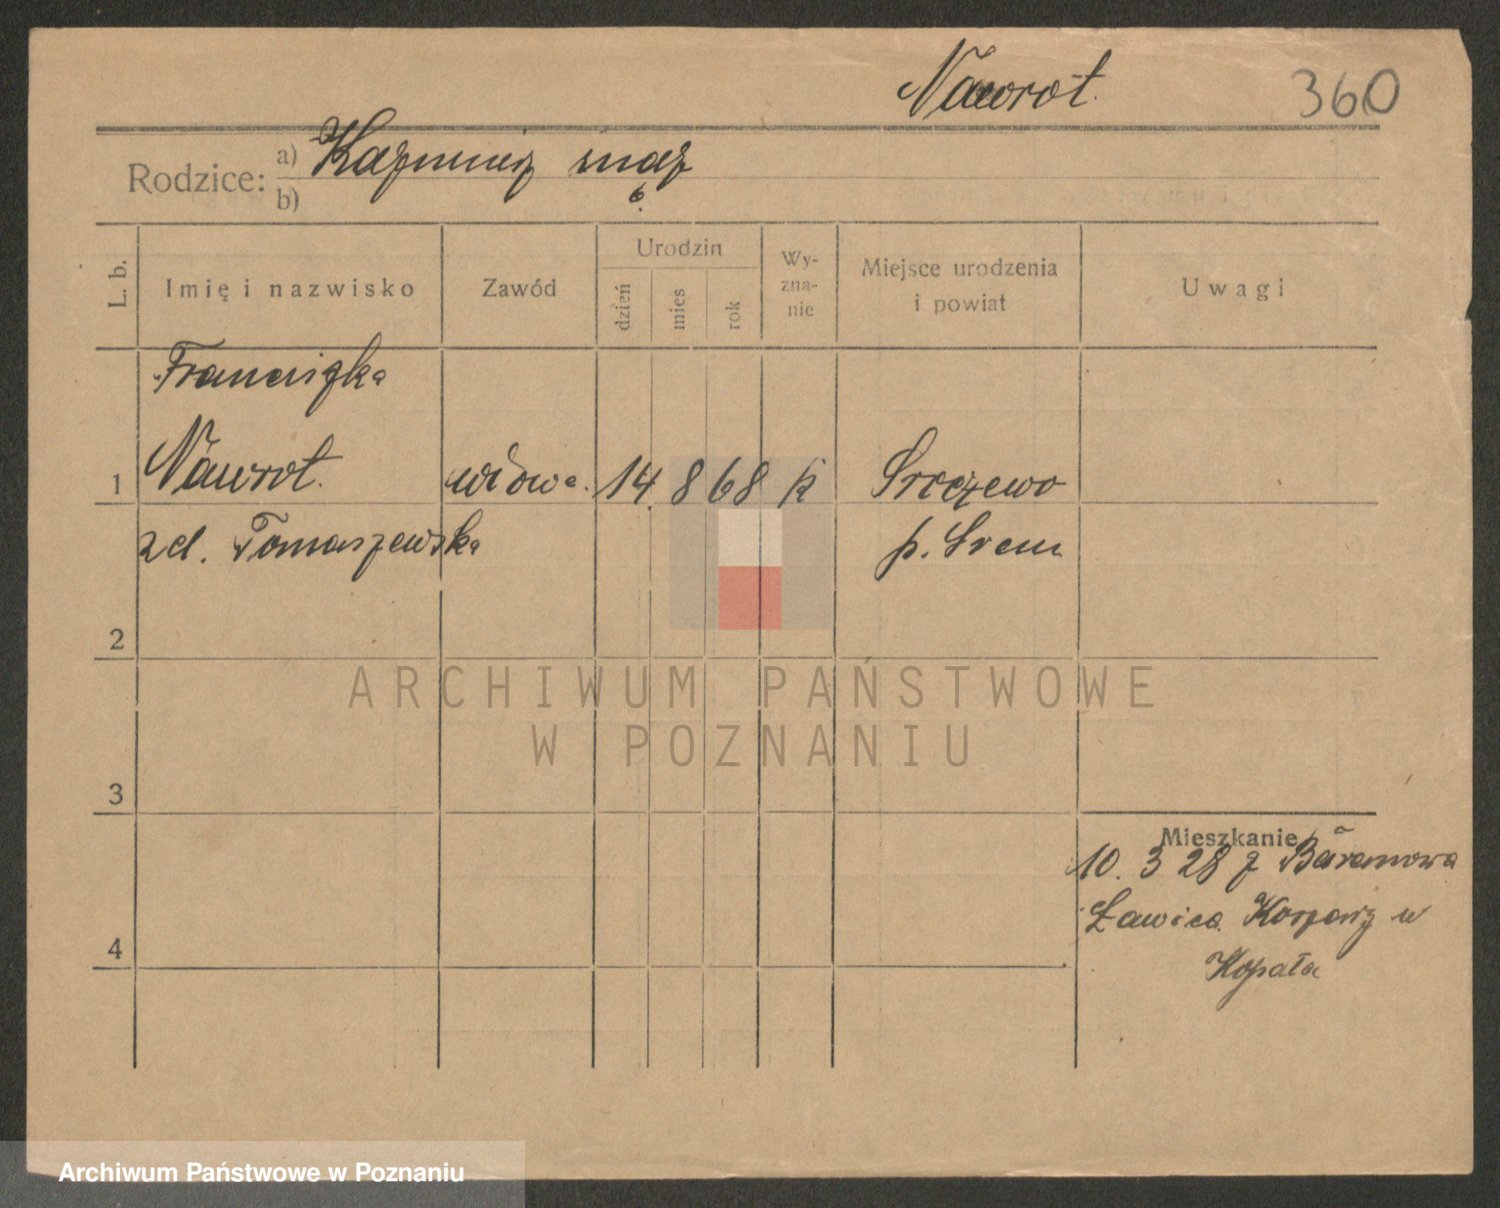 Nawrot.
360
Rodzice: a) Kazmierz mąż
b)
L. b.
Imię i nazwisko
Zawód
Urodzin
dzień
mies
rok
Wy-
zna-
nie
Miejsce urodzenia
i powiat
Uwagi
Franciszka
1 Nawrot. wdowa. 14. 8 68 k
zd. Tomaszewska p. Srem
2
3
4
Mieszkanie
10. 3 28 z Baranowa
Ławica. w
Kopała
ARCHIWUM PAŃSTWOWE
W POZNANIU
Archiwum Państwowe w Poznaniu